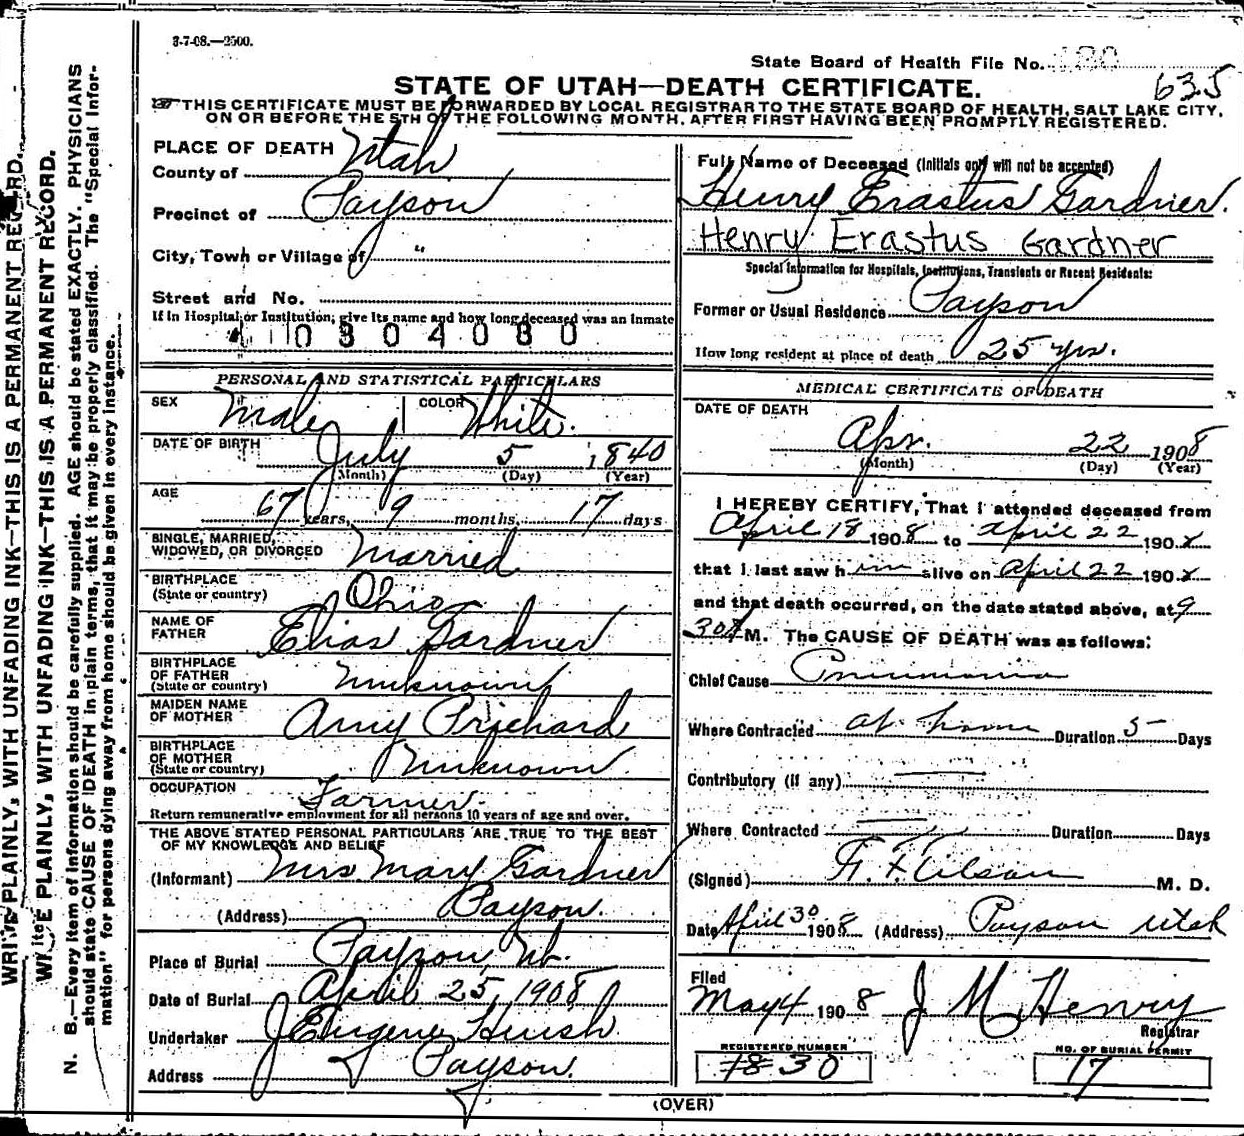 3-7-08.—2500.
State Board of Health File No.
635
STATE OF UTAH—DEATH CERTIFICATE.
THIS CERTIFICATE MUST BE FORWARDED BY LOCAL REGISTRAR TO THE STATE BOARD OF HEALTH, SALT LAKE CITY,
ON OR BEFORE THE 5TH OF THE FOLLOWING MONTH, AFTER FIRST HAVING BEEN PROMPTLY REGISTERED.
WRITE PLAINLY, WITH UNFADING INK—THIS IS A PERMANENT RECORD.
WRITE PLAINLY, WITH UNFADING INK—THIS IS A PERMANENT RECORD.
N. B.—Every item of information should be carefully supplied. AGE should be stated EXACTLY. PHYSICIANS
should state CAUSE OF DEATH in plain terms, that it may be properly classified. The "Special Infor-
mation" for persons dying away from home should be given in every instance.
PLACE OF DEATH
County of Utah
Precinct of Payson
City, Town or Village of "
Street and No.
If in Hospital or Institution, give its name and how long deceased was an inmate
0304080
PERSONAL AND STATISTICAL PARTICULARS
SEX Male COLOR White.
DATE OF BIRTH July 5 1840
(Month) (Day) (Year)
AGE 67 years, 9 months, 17 days
SINGLE, MARRIED,
WIDOWED, OR DIVORCED Married
BIRTHPLACE
(State or country) Ohio
NAME OF
FATHER Elias Gardner
BIRTHPLACE
OF FATHER
(State or country) Unknown
MAIDEN NAME
OF MOTHER Amy Prichard
BIRTHPLACE
OF MOTHER
(State or country) Unknown
OCCUPATION Farmer.
Return remunerative employment for all persons 10 years of age and over.
THE ABOVE STATED PERSONAL PARTICULARS ARE TRUE TO THE BEST
OF MY KNOWLEDGE AND BELIEF
(Informant) Mrs. Mary Gardner
(Address) Payson.
Place of Burial Payson, Ut.
Date of Burial April 25, 1908
Undertaker J Eugene Huish
Address Payson.
Full Name of Deceased (Initials only will not be accepted)
Henry Erastus Gardner.
Henry Erastus Gardner
Special Information for Hospitals, Institutions, Transients or Recent Residents:
Former or Usual Residence Payson
How long resident at place of death 25 yrs.
MEDICAL CERTIFICATE OF DEATH
DATE OF DEATH
Apr. 22 1908
(Month) (Day) (Year)
I HEREBY CERTIFY, That I attended deceased from
April 18 1908 to April 22 1908
that I last saw him alive on April 22 1908
and that death occurred, on the date stated above, at 9
30 A M. The CAUSE OF DEATH was as follows:
Chief Cause Pneumonia
Where Contracted at home Duration 5 Days
Contributory (if any)
Where Contracted Duration Days
(Signed) M. D.
Date April 30 1908 (Address) Payson Utah
Filed
May 4 1908 J M Henry
Registrar
REGISTERED NUMBER
18 30
NO. OF BURIAL PERMIT
17
(OVER)